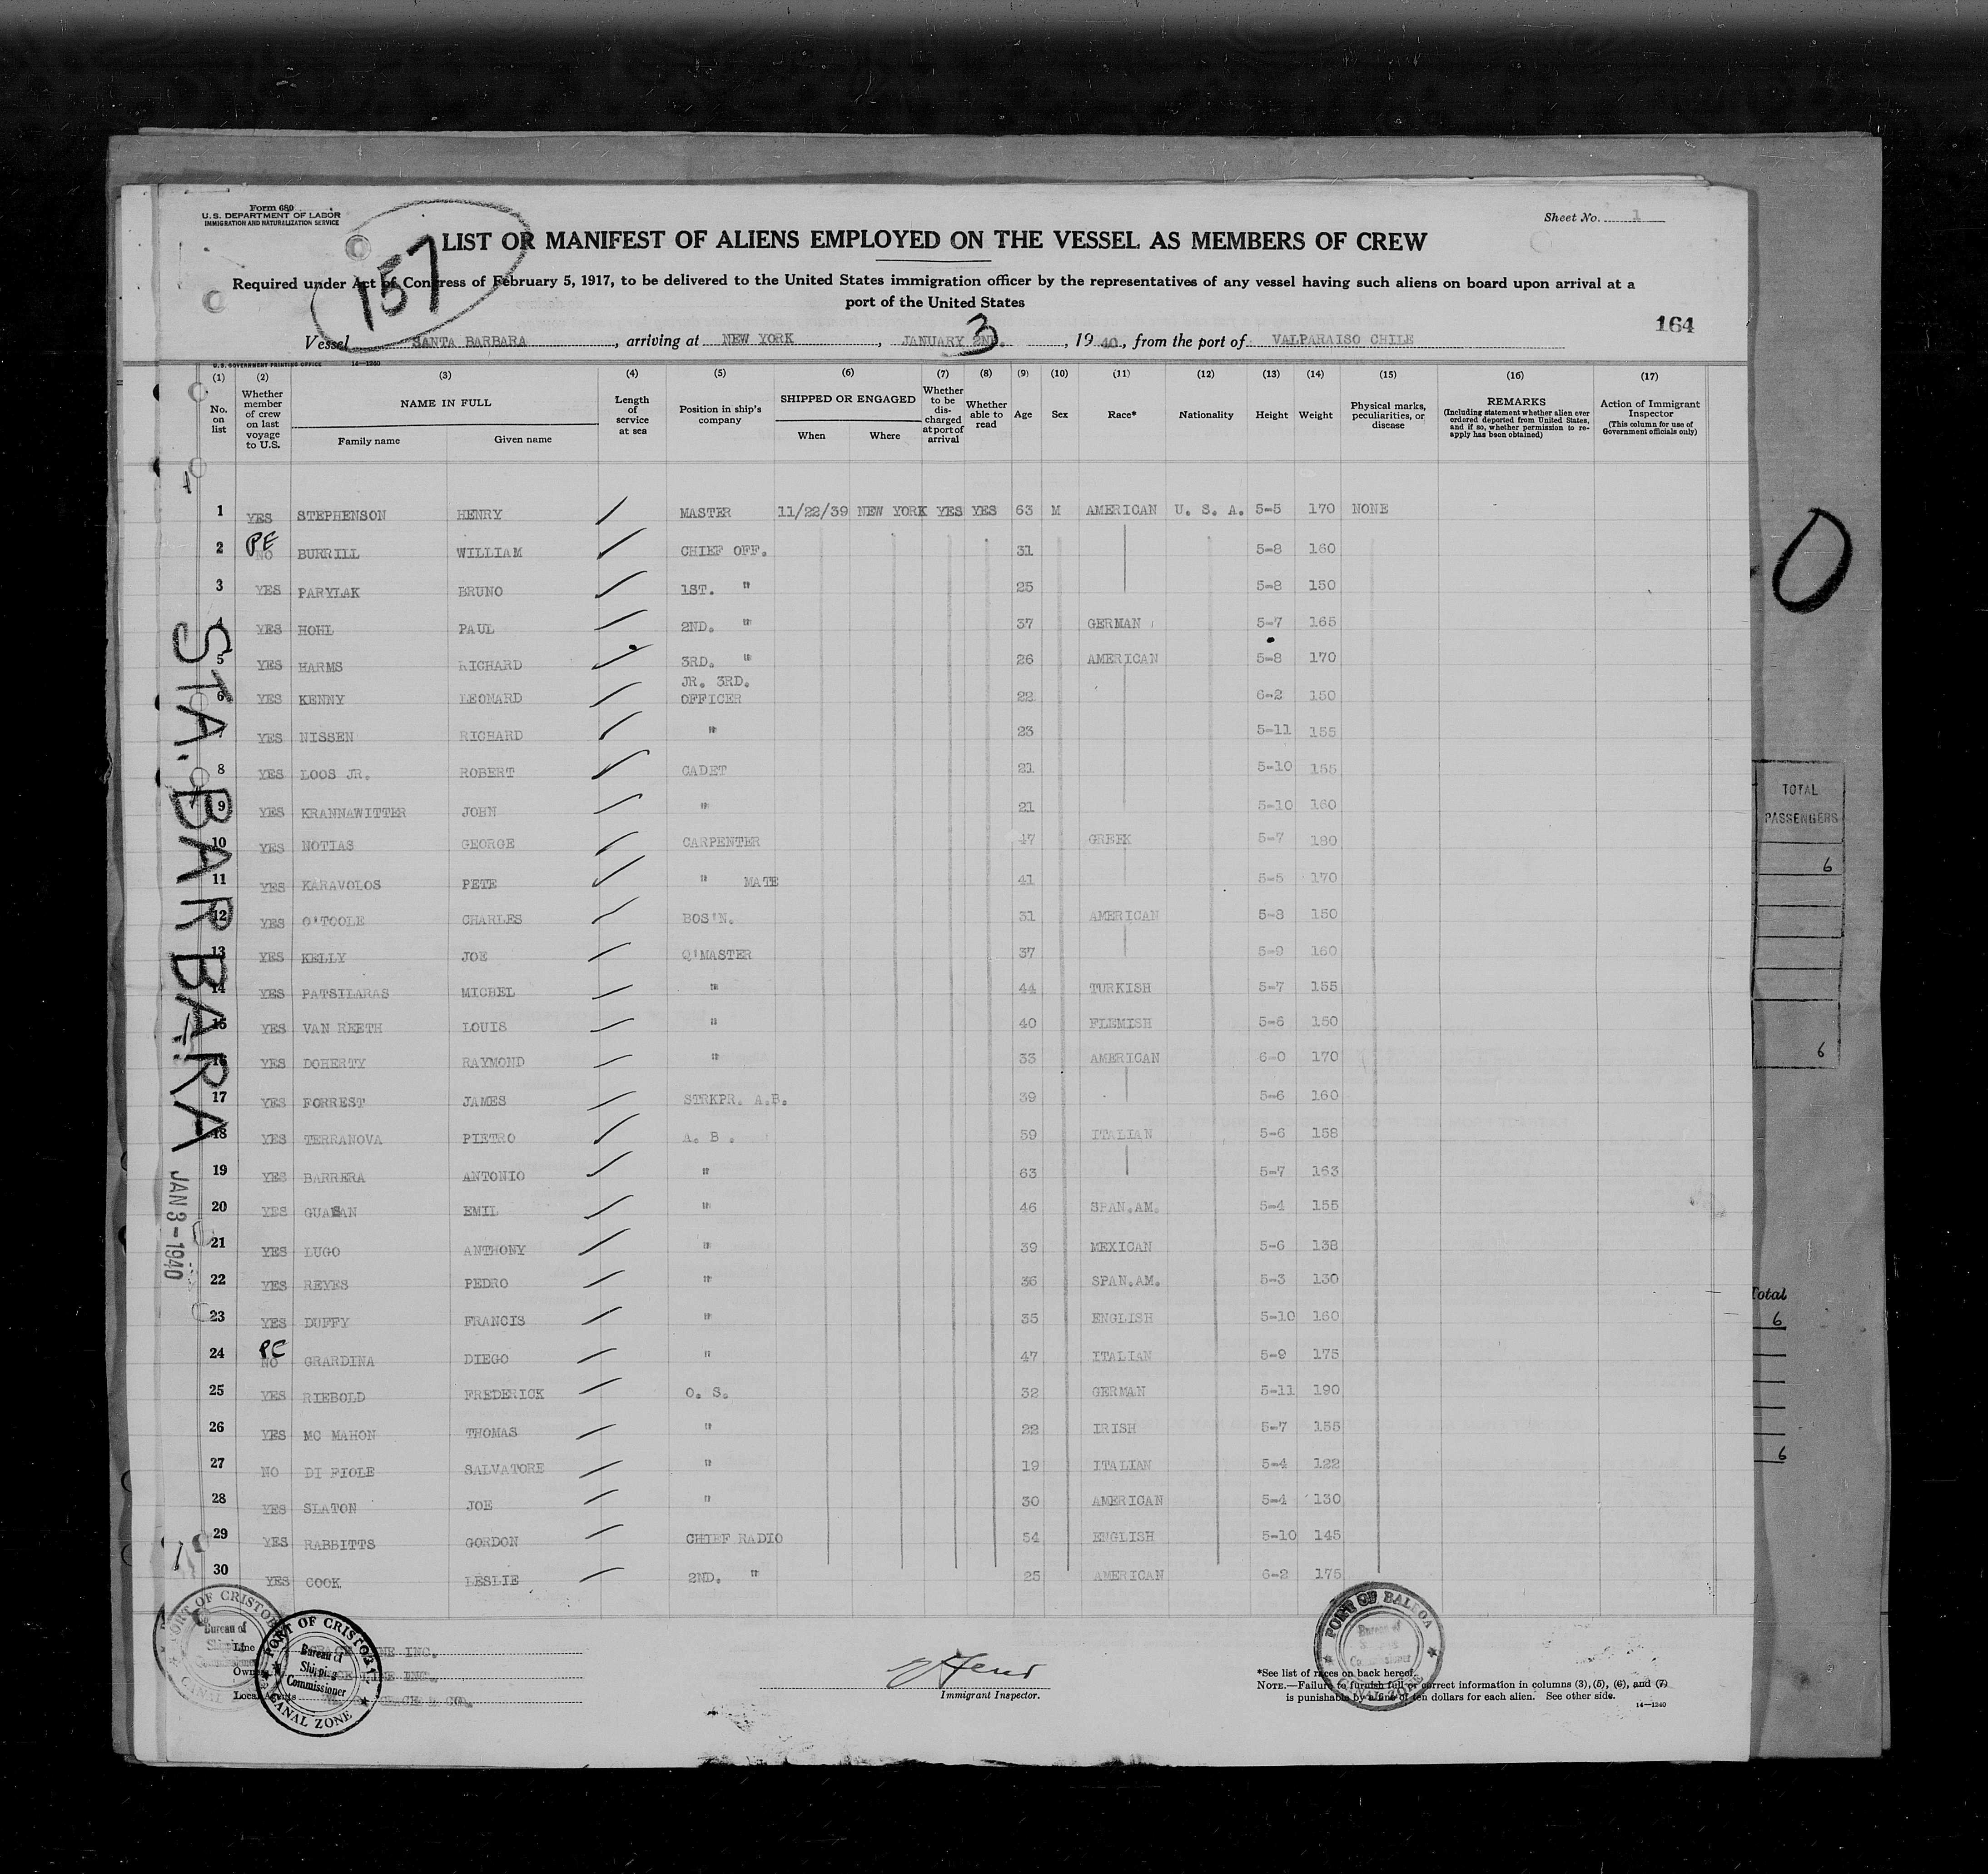 Form 680
U.S. DEPARTMENT OF LABOR
IMMIGRATION AND NATURALIZATION SERVICE
Sheet No. 1
157
LIST OR MANIFEST OF ALIENS EMPLOYED ON THE VESSEL AS MEMBERS OF CREW
Required under Act of Congress of February 5, 1917, to be delivered to the United States immigration officer by the representatives of any vessel having such aliens on board upon arrival at a
port of the United States
164
Vessel SANTA BARBARA, arriving at NEW YORK, JANUARY 2ND. 3, 1940, from the port of VALPARAISO CHILE
U.S. GOVERNMENT PRINTING OFFICE 14—1240
(1) (2) (3) (4) (5) (6) (7) (8) (9) (10) (11) (12) (13) (14) (15) (16) (17)
No. on list
Whether member of crew on last voyage to U.S.
NAME IN FULL
Family name Given name
Length of service at sea
Position in ship's company
SHIPPED OR ENGAGED
When Where
Whether to be discharged at port of arrival
Whether able to read
Age Sex Race* Nationality Height Weight
Physical marks, peculiarities, or disease
REMARKS
(Including statement whether alien ever ordered deported from United States, and if so, whether permission to re-apply has been obtained)
Action of Immigrant Inspector
(This column for use of Government officials only)
1 YES STEPHENSON HENRY MASTER 11/22/39 NEW YORK YES YES 63 M AMERICAN U. S. A. 5-5 170 NONE
2 PE NO BURRILL WILLIAM CHIEF OFF. 31 5-8 160
3 YES PARYLAK BRUNO 1ST. " 25 5-8 150
4 YES HOHL PAUL 2ND. " 37 GERMAN 5-7 165
5 YES HARMS RICHARD 3RD. " 26 AMERICAN 5-8 170
6 YES KENNY LEONARD JR. 3RD. OFFICER 22 6-2 150
7 YES NISSEN RICHARD " 23 5-11 155
8 YES LOOS JR. ROBERT CADET 21 5-10 155
9 YES KRANNAWITTER JOHN " 21 5-10 160
10 YES NOTIAS GEORGE CARPENTER 47 GREEK 5-7 180
11 YES KARAVOLOS PETE " MATE 41 5-5 170
12 YES O'TOOLE CHARLES BOS'N. 31 AMERICAN 5-8 150
13 YES KELLY JOE Q'MASTER 37 5-9 160
14 YES PATSILARAS MICHEL " 44 TURKISH 5-7 155
15 YES VAN REETH LOUIS " 40 FLEMISH 5-6 150
16 YES DOHERTY RAYMOND " 33 AMERICAN 6-0 170
17 YES FORREST JAMES STRKPR. A.B. 39 5-6 160
18 YES TERRANOVA PIETRO A. B. 59 ITALIAN 5-6 158
19 YES BARRERA ANTONIO " 63 5-7 163
20 YES GUASAN EMIL " 46 SPAN.AM. 5-4 155
21 YES LUGO ANTHONY " 39 MEXICAN 5-6 138
22 YES REYES PEDRO " 36 SPAN.AM. 5-3 130
23 YES DUFFY FRANCIS " 35 ENGLISH 5-10 160
24 PE NO GRARDINA DIEGO " 47 ITALIAN 5-9 175
25 YES RIEBOLD FREDERICK O. S. 32 GERMAN 5-11 190
26 YES MC MAHON THOMAS " 22 IRISH 5-7 155
27 NO DI FIOLE SALVATORE " 19 ITALIAN 5-4 122
28 YES SLATON JOE " 30 AMERICAN 5-4 130
29 YES RABBITTS GORDON CHIEF RADIO 54 ENGLISH 5-10 145
30 YES COOK LESLIE 2ND. " 25 AMERICAN 6-2 175
STA. BARBARA
JAN 3-1940
Line GRACE LINE INC.
Owners GRACE LINE INC.
Local Agents GRACE & CO.
PORT OF CRISTOBAL
Bureau of
Shipping
Commissioner
CANAL ZONE
PORT OF CRISTOBAL
Bureau of
Shipping
Commissioner
CANAL ZONE
Immigrant Inspector.
PORT OF BALBOA
Bureau of
Shipping
Commissioner
CANAL ZONE
*See list of races on back hereof.
NOTE.—Failure to furnish full or correct information in columns (3), (5), (6), and (7)
is punishable by a fine of ten dollars for each alien. See other side.
14—1240
0
TOTAL
PASSENGERS
6
6
Total
6
6